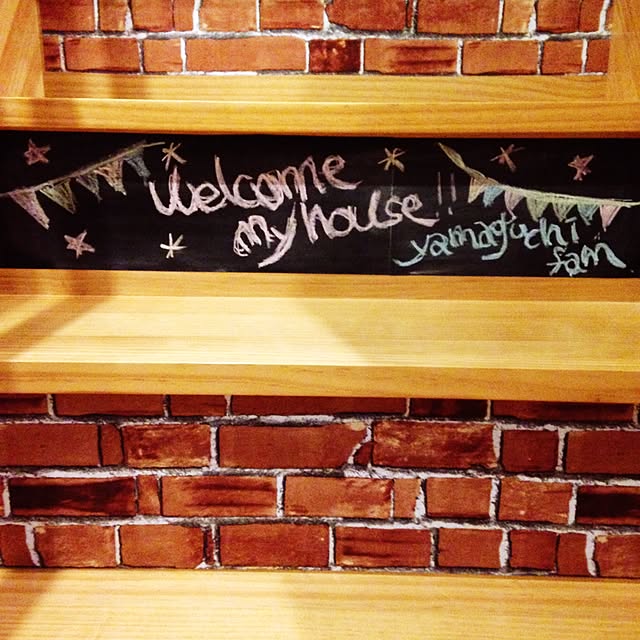 Welcome
my house!!
yamaguchi
fam